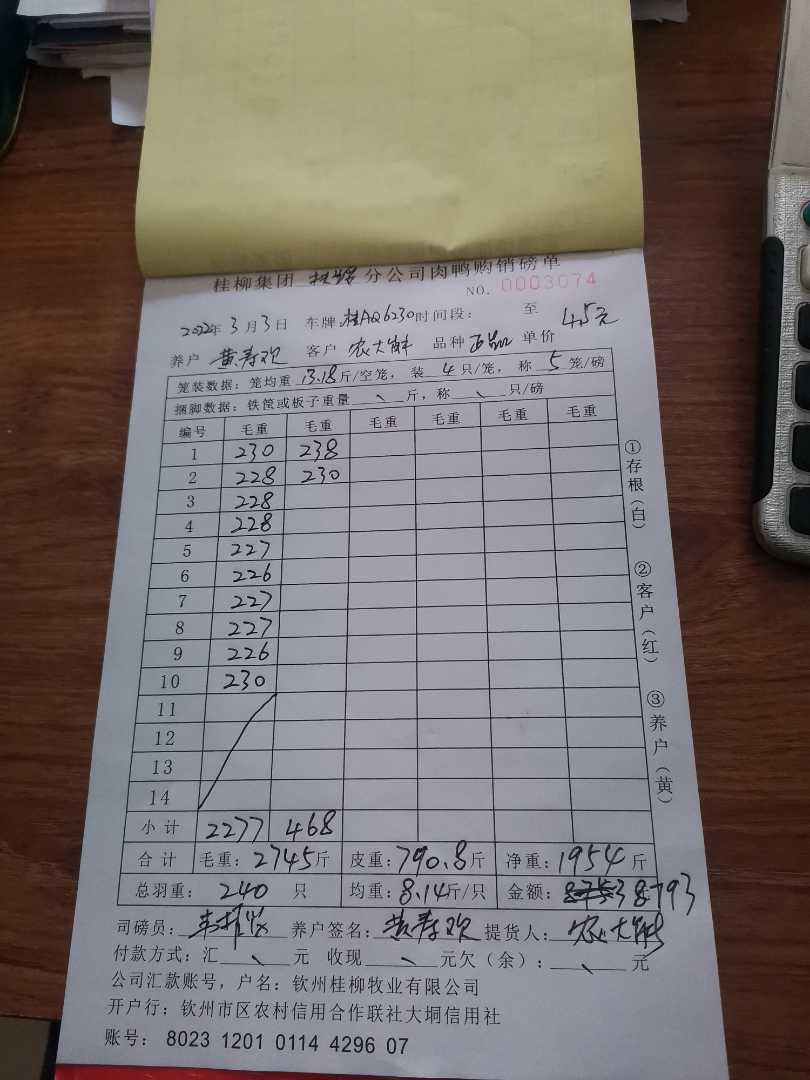 桂柳集团 分公司肉鸭购销磅单
NO. 0003074
2022年3月3日 车牌:桂AQ6230 时间段: 至
养户 黄寿欢 客户 农大 品种 正品 单价 4.5元
笼装数据: 笼均重 13.18 斤/空笼, 装 4 只/笼, 称 5 笼/磅
捆脚数据: 铁筐或板子重量 斤, 称 只/磅
编号 毛重 毛重 毛重 毛重 毛重 毛重
1 230 238
2 228 230
3 228
4 228
5 227
6 226
7 227
8 227
9 226
10 230
11
12
13
14
小计 2277 468
合计 毛重: 2745斤 皮重: 790.8斤 净重: 1954斤
总羽重: 240 只 均重: 8.14斤/只 金额: 8793
司磅员: 养户签名: 黄寿欢 提货人: 农大
付款方式: 汇 元 收现 元欠(余): 元
公司汇款账号, 户名: 钦州桂柳牧业有限公司
开户行: 钦州市区农村信用合作联社大垌信用社
账号: 8023 1201 0114 4296 07
①存根(白) ②客户(红) ③养户(黄)